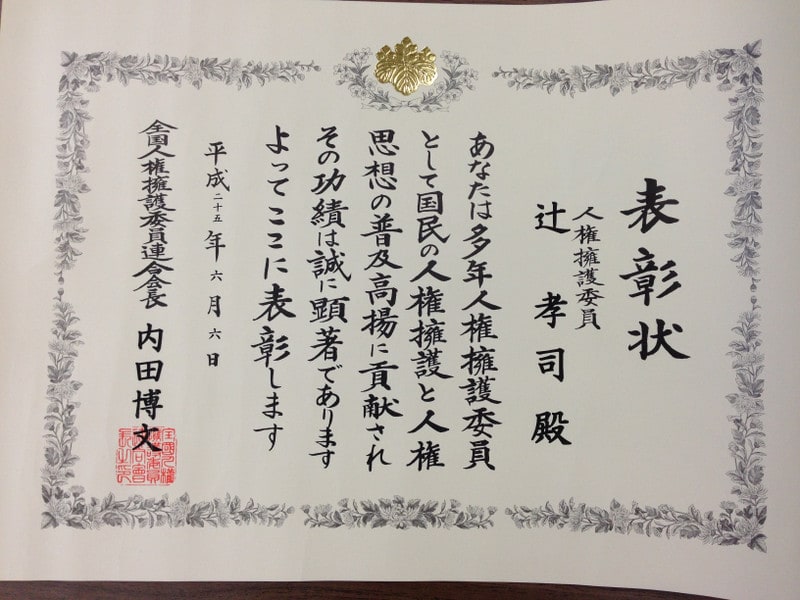 表彰状
人権擁護委員
辻孝司殿
あなたは多年人権擁護委員
として国民の人権擁護と人権
思想の普及高揚に貢献され
その功績は誠に顕著であります
よってここに表彰します
平成二十五年六月六日
全国人権擁護委員連合会長 内田博文